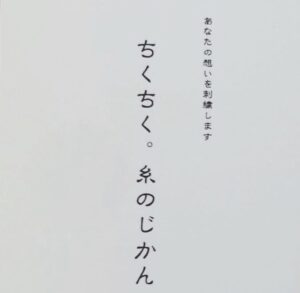 あなたの想いを刺繍します
ちくちく。糸のじかん